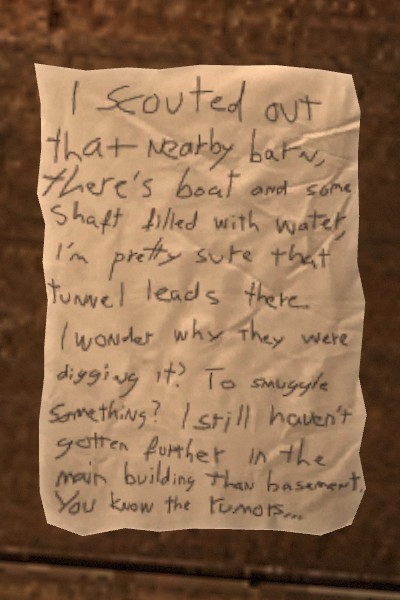 I scouted out
that nearby barn,
there's boat and some
shaft filled with water,
I'm pretty sure that
tunnel leads there.
I wonder why they were
digging it? To smuggle
something? I still haven't
gotten further in the
main building than basement.
You know the rumors...